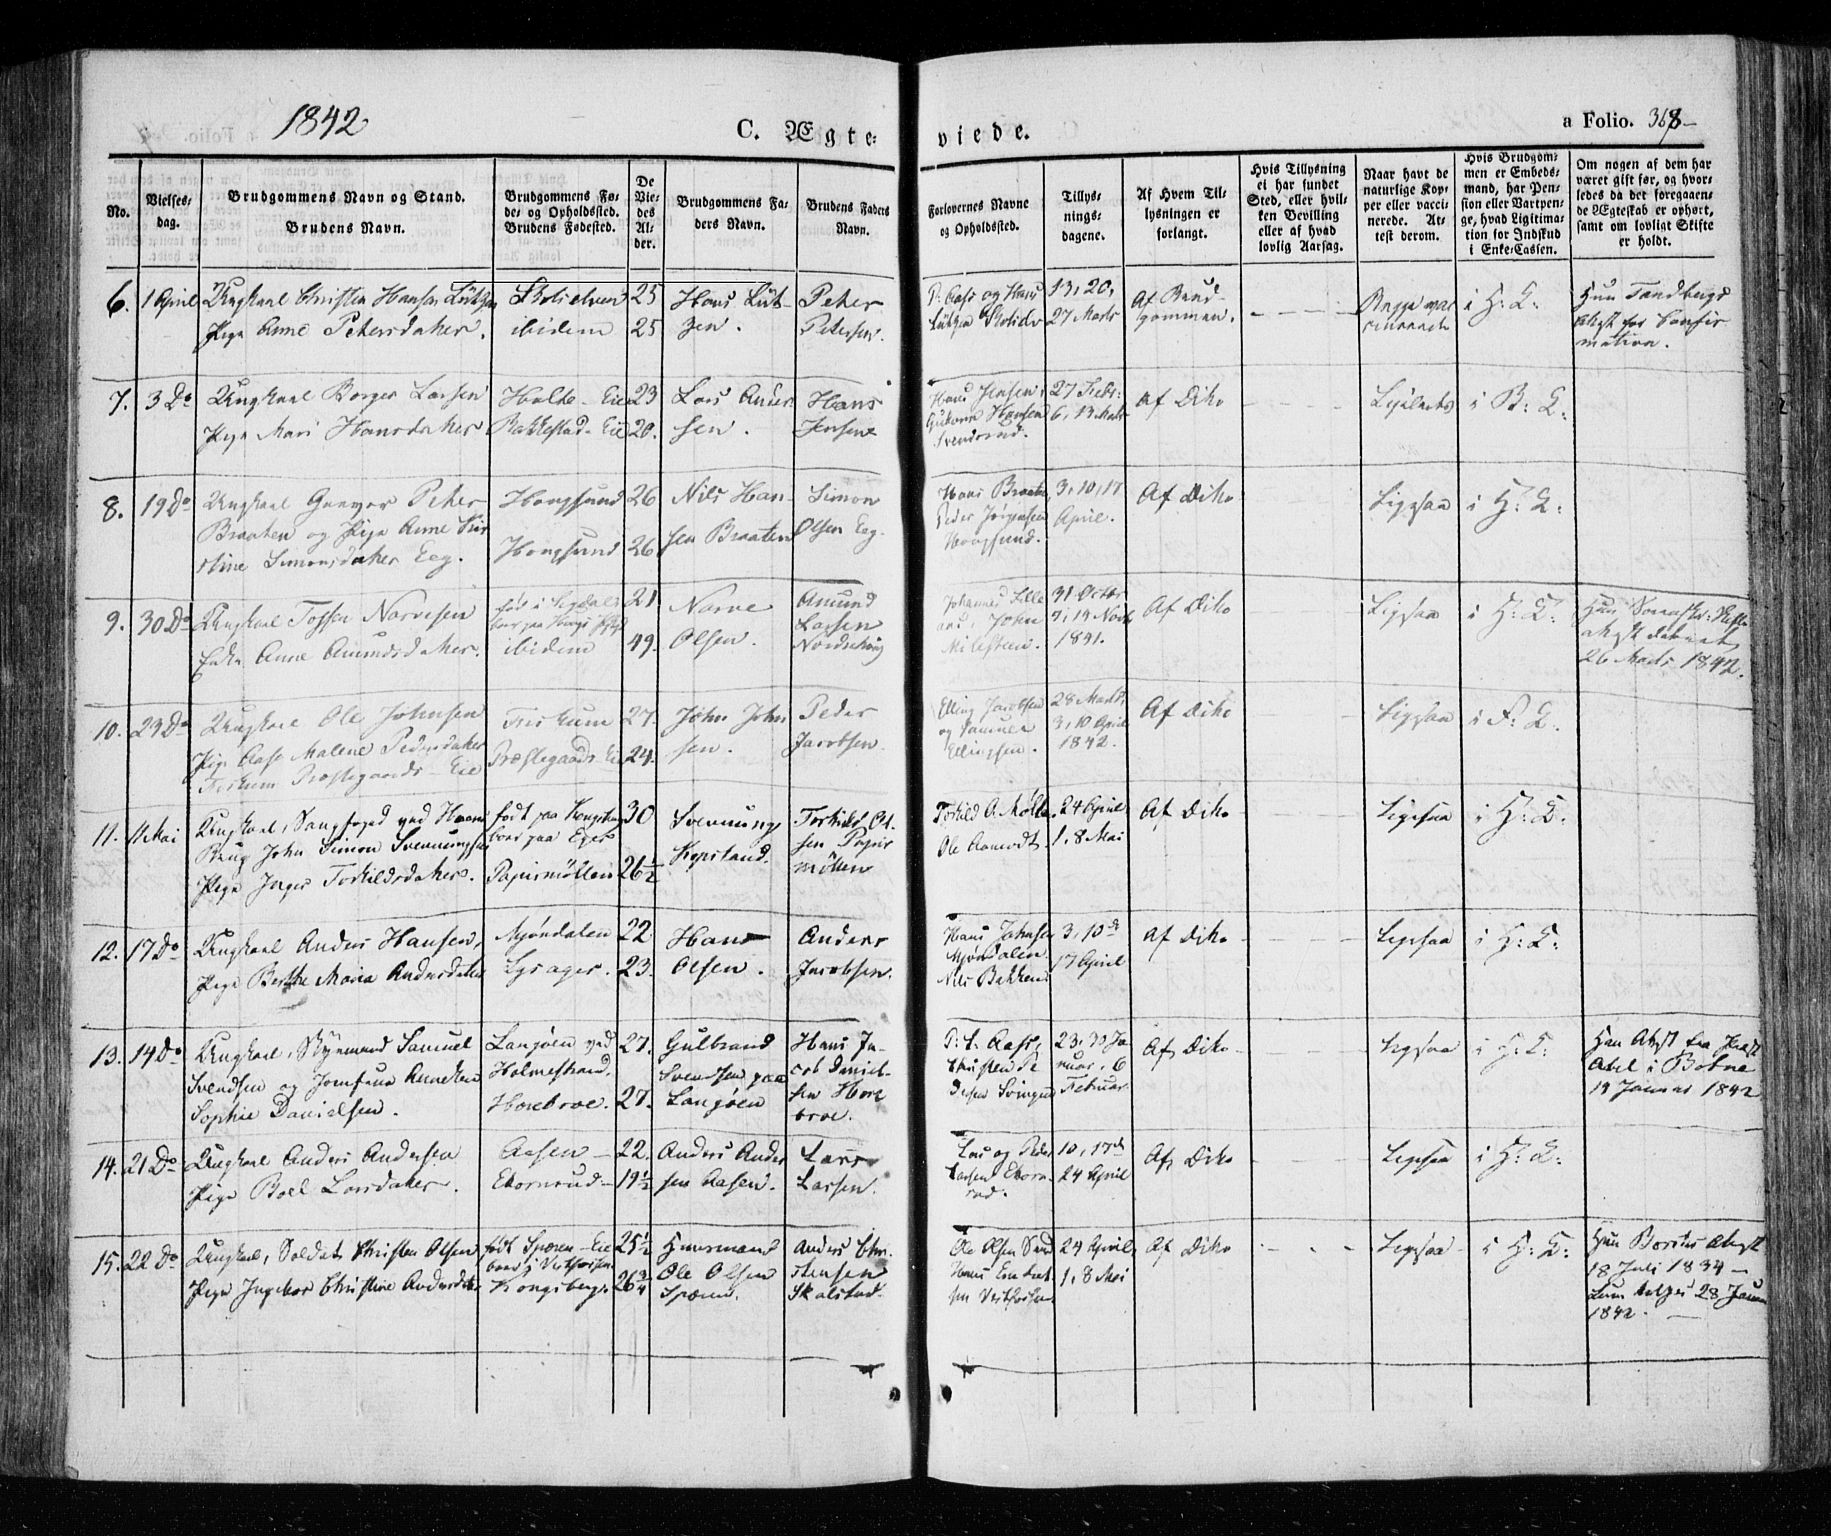 1842
C. Ægte-
viede.
a Folio. 368
No.
Vielses-
dag.
Brudgommens Navn og Stand.
Brudens Navn.
Brudgommens Fø-
de- og Opholdssted.
Brudens Fødested.
De
Vie-
des
Al-
der.
Brudgommens Fa-
ders Navn.
Brudens Faders
Navn.
Forlovernes Navne
og Opholdssted.
Tillys-
nings-
dagene.
Af Hvem Til-
lysningen er
forlangt.
Hvis Tillysning
ei har fundet
Sted, eller hvil-
ken Bevilling
eller af hvad
lovlig Aarsag.
Naar havt de
naturlige Kop-
per eller vacci-
nerede. At-
test derom.
Hvis Brudgom-
men er Embeds-
mand, har Pen-
sion eller Vartpen-
ge, hvad Ligitima-
tion for Indskud
i Enke-Cassen.
Om nogen af dem har
været gift før, og hvor-
ledes da det foregaaen-
de Ægteskab er ophørt,
samt om lovligt Skifte
er holdt.
6. 1 April Ungkarl Christen Hansen Lützen
Pige Anne Petersdatter.
ibidem
25
25
Hans Lüt-
zen.
Peter
Petersen.
P. Aass og Hans
Lützen
13, 20,
27 Marts
Af Brud-
gommen.
Begge vac
cinerede
i H: K:
Hun Tandbergs
Attest for Confir
mation.
7. 3 Do Ungkarl Borger Larsen
Pige Mari Hansdatter
Holte-Eie
Bakkestad-Eie
23
20.
Lars Ander
sen.
Hans
Jensen
Hans Jensen,
Hansen
27 Febr:
6, 13 Marts
Af Dito
i B: K:
8. 19 Do Ungkarl Gunvor Peter
Braaten og Pige Anne Kir
stine Simonsdatter Eeg.
Hougsund
Hougsund
26
26
Nils Han-
sen Braaten
Simon
Olsen Eeg.
Hans Braaten
Peder Jørgensen
Hougsund.
3, 10, 17
April.
Af Dito
Ligesaa
i H: K:
9. 30 Do Ungkarl Narvesen
Enke Anne Amundsdatter.
født i Sigdal
ibidem
21
49.
Narve
Olsen.
Amund
Larsen
Johannes Lille
John
Milesteen.
31 Octbr
7, 14 Novb
1841.
Af Dito
Ligesaa
i H: K:
Hun
26 Marts 1842.
10. 23 Do Ungkarl Ole Johnsen
Pige Aase Malene Pedersdatter
Fiskum Præstegaards-Eie
Fiskum
Præstegaards-Eie
27.
24.
John John
sen.
Peder
Jacobsen.
Elling Jacobsen
og Samuel
Ellingsen.
28 Marts,
3, 10 April
1842.
Af Dito
Ligesaa
i
11. 11 Mai Ungkarl,
Brug John Simon Svenningsen
Pige Inger Torkildsdatter.
født paa Kongsberg
boer paa Eger
Papirmøllen
30
26½
Svenning
Kopstand.
Torkild Ol-
sen Papir
møllen
Torkild A. Mølle
Ole Aamodt.
24 April
1, 8 Mai
Af Dito
Ligesaa
i H: K:
12. 17 Do Ungkarl Anders Hansen,
Pige Berthe Maria Andersdatter
Mjøndalen
Lysager.
22
23.
Hans
Olsen.
Anders
Jacobsen.
Hans Johnsen
Mjøndalen
Nils Bakken
3, 10de
17 April
Af Dito
Ligesaa
i H: K:
13. 14 Do Ungkarl, Samuel
Svendsen og Jomfrue Anneken
Sophie Danielsen.
Langøen ved
Holmestrand.
Horebroe.
27.
27.
Gulbrand
Svendsen paa
Langøen
Hans Ja-
cob Daniel-
sen Hore
broe.
P: S. Aass,
Christen Pe
dersen
23, 30 Ja
nuar, 6
Februar
Af Dito
Ligesaa
i H: K:
Han Attest fra Præst
Abel i Botne
19 Januar 1842
14. 21 Do Ungkarl Anders Andersen
Pige Boel Larsdatter.
Aasen
Ekornrud
22.
19½
Anders Ander
sen Aasen.
Lars
Larsen.
Lars og Peder
Larsen Ekorn-
rud.
10, 17de
24 April
Af Dito
Ligesaa
i H: K:
15. 22 Do Ungkarl, Soldat Christen Olsen
Pige Ingebor Christine Andersdatter
født Speren-Eie
boer i Vestfossen
Kongsberg.
25½
26¾
Huusmand
Ole Olsen
Anders Chri-
stensen
Skalstad.
Ole Olsen
Hans
sen Vestfossen
24 April
1, 8 Mai
Af Dito
Ligesaa
i H: K:
Hun
18 Juli 1834
28 Januar
1842.